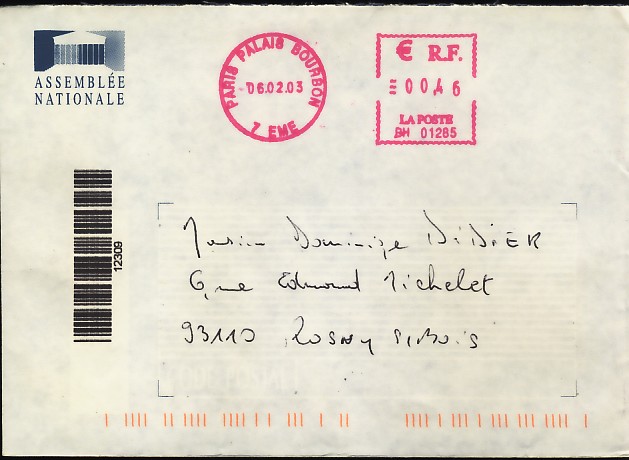 ASSEMBLÉE
NATIONALE
PARIS PALAIS BOURBON
06.02.03
7 EME
€ R.F.
00,46
LA POSTE
BH 01285
12309
Monsieur Dominique DIDIER
6, rue Edmond Michelet
93110 ROSNY S/BOIS